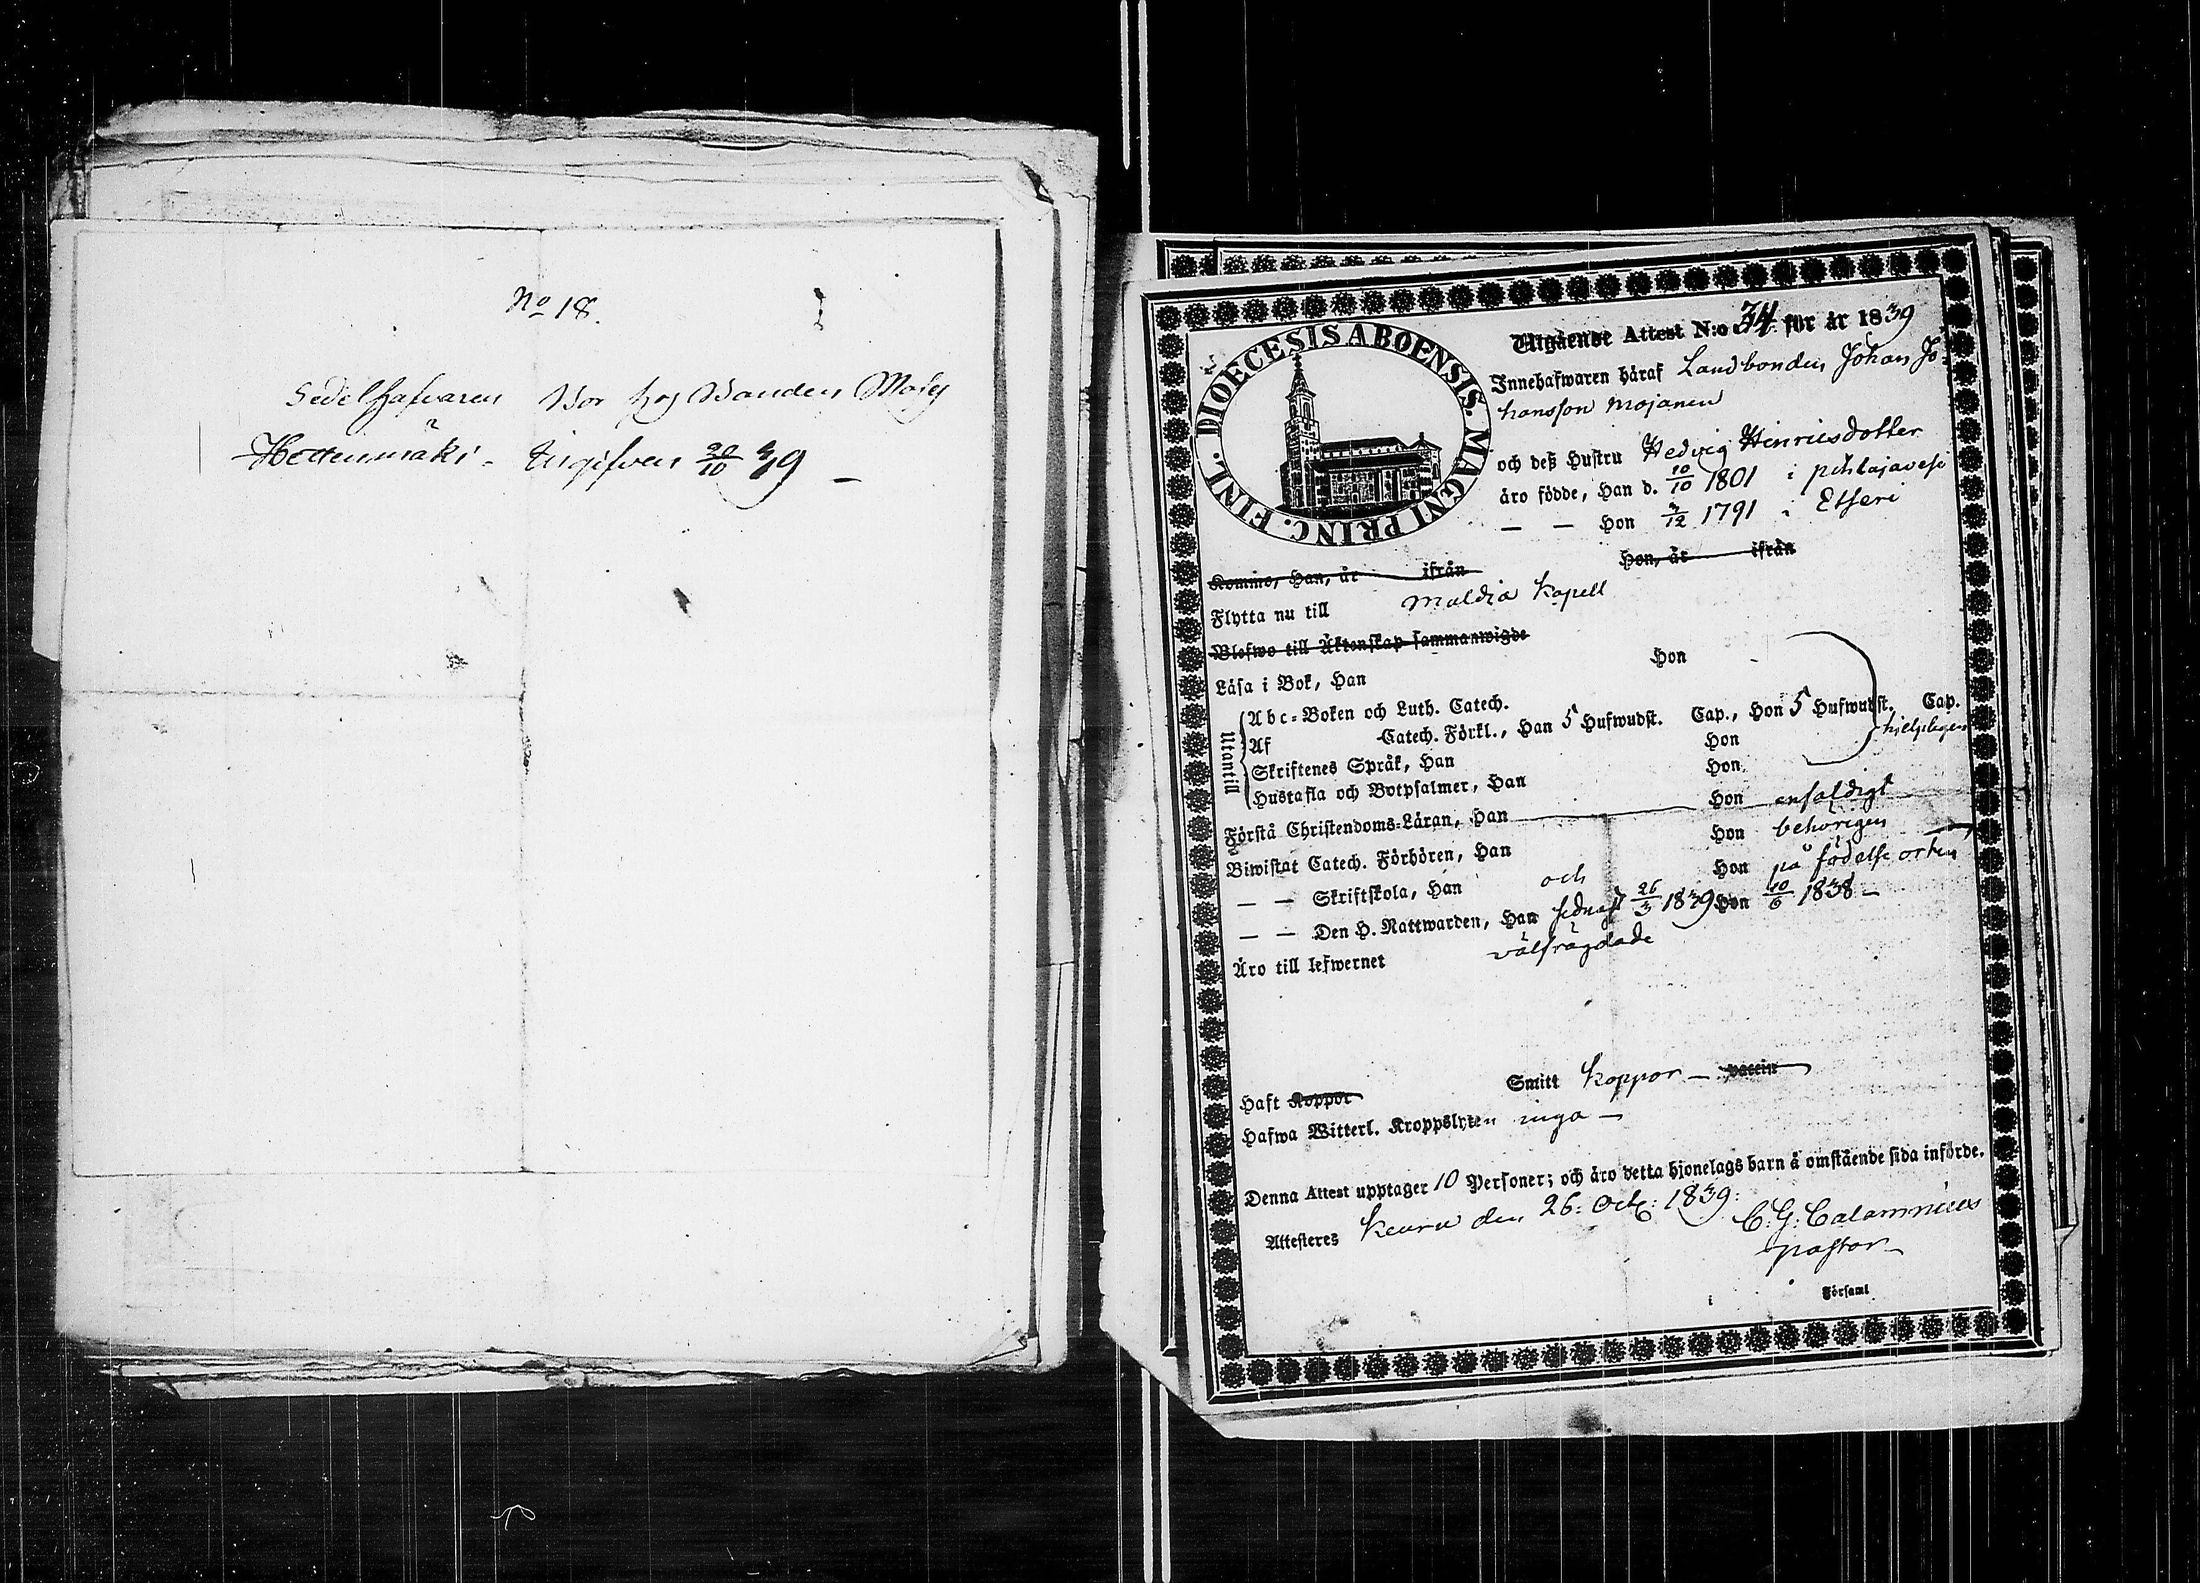 No 18.
Sedelhafvaren Bor hos Bonden
Hettenmäki - Utgifven 20/10 39
DIOECESIS ABOENSIS. MAGNI PRINC. FINL.
Utgående Attest N:o 34 för år 1839
Innehafwaren häraf Landbonden Johan Jo-
hansson Mojanen
och deß Hustru Hedvig Hinricsdotter
äro födde, Han d. 10/10 1801 i pihlajavesi
— — Hon 7/12 1791 i Etseri
Komne, Han, år ifrån Hon, år ifrån
Flytta nu till Muldia Kapell
Blefwo till Äktenskap sammanwigde
Läsa i Bok, Han Hon
Utantill
Abc-Boken och Luth. Catech.
Af Catech. Förkl., Han 5 Hufwudst. Cap., Hon 5 Hufwudst. Cap.
Skriftenes Språk, Han Hon hjelpligen
Hustafla och Botpsalmer, Han Hon
Förstå Christendoms-Läran, Han Hon enfaldigt
Biwistat Catech. Förhören, Han Hon behörigen
— — Skriftskola, Han och Hon på födelse orten
— — Den H. Nattwarden, Han sednast 26/3 1839 Hon 10/6 1838 —
Äro till lefwernet välfrägdade
Haft Koppor Smitt Koppor — vaccin
Hafwa Witterl. Kroppslyten inga —
Denna Attest upptager 10 Personer; och äro detta hjonelags barn å omstående sida införde.
Attesteres Keuru den 26. Oct: 1839.
C. G. Calamnius
pastor
i Församl